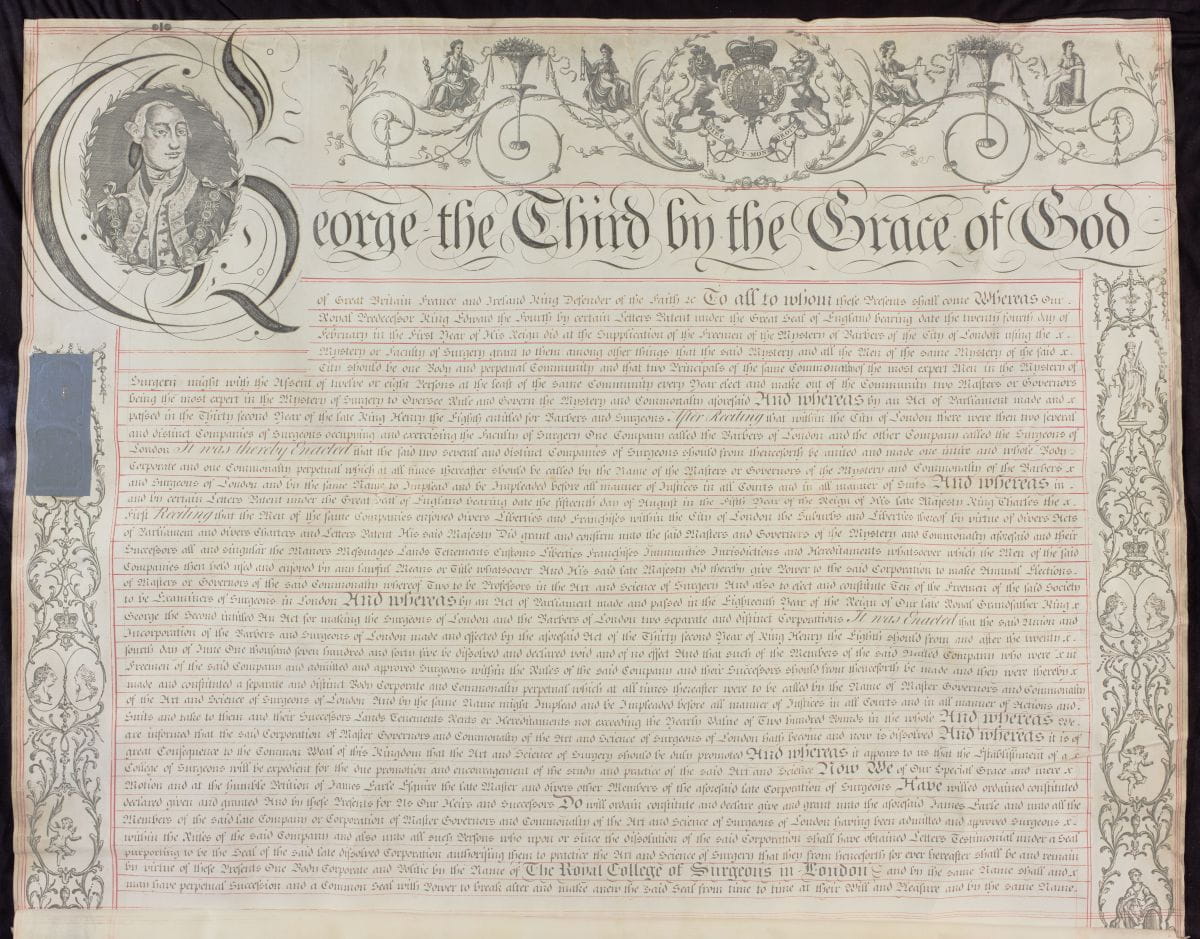 DIEU ET MON DROIT
George the Third by the Grace of God
of Great Britain France and Ireland King Defender of the Faith &c To all to whom these Presents shall come Whereas Our
Royal Predecessor King Edward the Fourth by certain Letters Patent under the Great Seal of England bearing date the twenty fourth day of
February in the First Year of His Reign did at the Supplication of the Freemen of the Mystery of Barbers of the City of London using the x
Mystery or Faculty of Surgery grant to them among other things that the said Mystery and all the Men of the same Mystery of the said x
City should be one Body and perpetual Community and that two Principals of the same Commonalty of the most expert Men in the Mystery of
Surgery might with the Assent of twelve or eight Persons at the least of the same Community every Year elect and make out of the Community two Masters or Governors
being the most expert in the Mystery of Surgery to Oversee Rule and Govern the Mystery and Commonalty aforesaid And whereas by an Act of Parliament made and x
passed in the Thirty second Year of the late King Henry the Eighth entitled for Barbers and Surgeons After Reciting that within the City of London there were then two several
and distinct Companies of Surgeons occupying and exercising the Faculty of Surgery One Company called the Barbers of London and the other Company called the Surgeons of
London It was thereby Enacted that the said two several and distinct Companies of Surgeons should from thenceforth be united and made one intire and whole Body
Corporate and one Commonalty perpetual which at all times thereafter should be called by the Name of the Masters or Governors of the Mystery and Commonalty of the Barbers x
and Surgeons of London and by the same Name to Implead and be Impleaded before all manner of Justices in all Courts and in all manner of Suits And whereas in
and by certain Letters Patent under the Great Seal of England bearing date the fifteenth day of August in the Fifth Year of the Reign of His late Majesty King Charles the x
First Reciting that the Men of the same Companies enjoyed divers Liberties and Franchises within the City of London the Suburbs and Liberties thereof by virtue of divers Acts
of Parliament and divers Charters and Letters Patent His said Majesty Did grant and confirm unto the said Masters and Governors of the Mystery and Commonalty aforesaid and their
Successors all and singular the Manors Messuages Lands Tenements Customs Liberties Franchises Immunities Jurisdictions and Hereditaments whatsoever which the Men of the said
Companies then held used and enjoyed by any lawful Means or Title whatsoever And His said late Majesty did thereby give Power to the said Corporation to make Annual Elections
of Masters or Governors of the said Commonalty whereof Two to be Professors in the Art and Science of Surgery And also to elect and constitute Ten of the Freemen of the said Society
to be Examiners of Surgeons in London And whereas by an Act of Parliament made and passed in the Eighteenth Year of the Reign of Our late Royal Grandfather King x
George the Second intitled An Act for making the Surgeons of London and the Barbers of London two separate and distinct Corporations It was Enacted that the said Union and
Incorporation of the Barbers and Surgeons of London made and effected by the aforesaid Act of the Thirty second Year of King Henry the Eighth should from and after the twenty x
fourth day of June One thousand seven hundred and forty five be dissolved and declared void and of no effect And that such of the Members of the said United Company who were x
Freemen of the said Company and admitted and approved Surgeons within the Rules of the said Company and their Successors should from thenceforth be made and they were thereby x
made and constituted a separate and distinct Body Corporate and Commonalty perpetual which at all times thereafter were to be called by the Name of Master Governors and Commonalty
of the Art and Science of Surgeons of London And by the same Name might Implead and be Impleaded before all manner of Justices in all Courts and in all manner of Actions and
Suits and take to them and their Successors Lands Tenements Rents or Hereditaments not exceeding the Yearly Value of Two hundred Pounds in the whole And whereas We
are informed that the said Corporation of Master Governors and Commonalty of the Art and Science of Surgeons of London hath become and now is dissolved And whereas it is of
great Consequence to the Common Weal of this Kingdom that the Art and Science of Surgery should be duly promoted And whereas it appears to us that the Establishment of a x
College of Surgeons will be expedient for the due promotion and encouragement of the study and practice of the said Art and Science Now We of Our Special Grace and mere x
Motion and at the humble Petition of James Earle Esquire the late Master and divers other Members of the aforesaid late Corporation of Surgeons Have willed ordained constituted
declared given and granted And by these Presents for Us Our Heirs and Successors Do will ordain constitute and declare give and grant unto the aforesaid James Earle and unto all the
Members of the said late Company or Corporation of Master Governors and Commonalty of the Art and Science of Surgeons of London having been admitted and approved Surgeons x
within the Rules of the said Company and also unto all such Persons who upon or since the dissolution of the said Corporation shall have obtained Letters Testimonial under a Seal
purporting to be the Seal of the said late dissolved Corporation authorising them to practice the Art and Science of Surgery that they from henceforth for ever hereafter shall be and remain
by virtue of these Presents One Body Corporate and Politic by the Name of The Royal College of Surgeons in London and by the same Name shall and x
may have perpetual Succession and a Common Seal with Power to break alter and make anew the said Seal from time to time at their Will and Pleasure and by the same Name